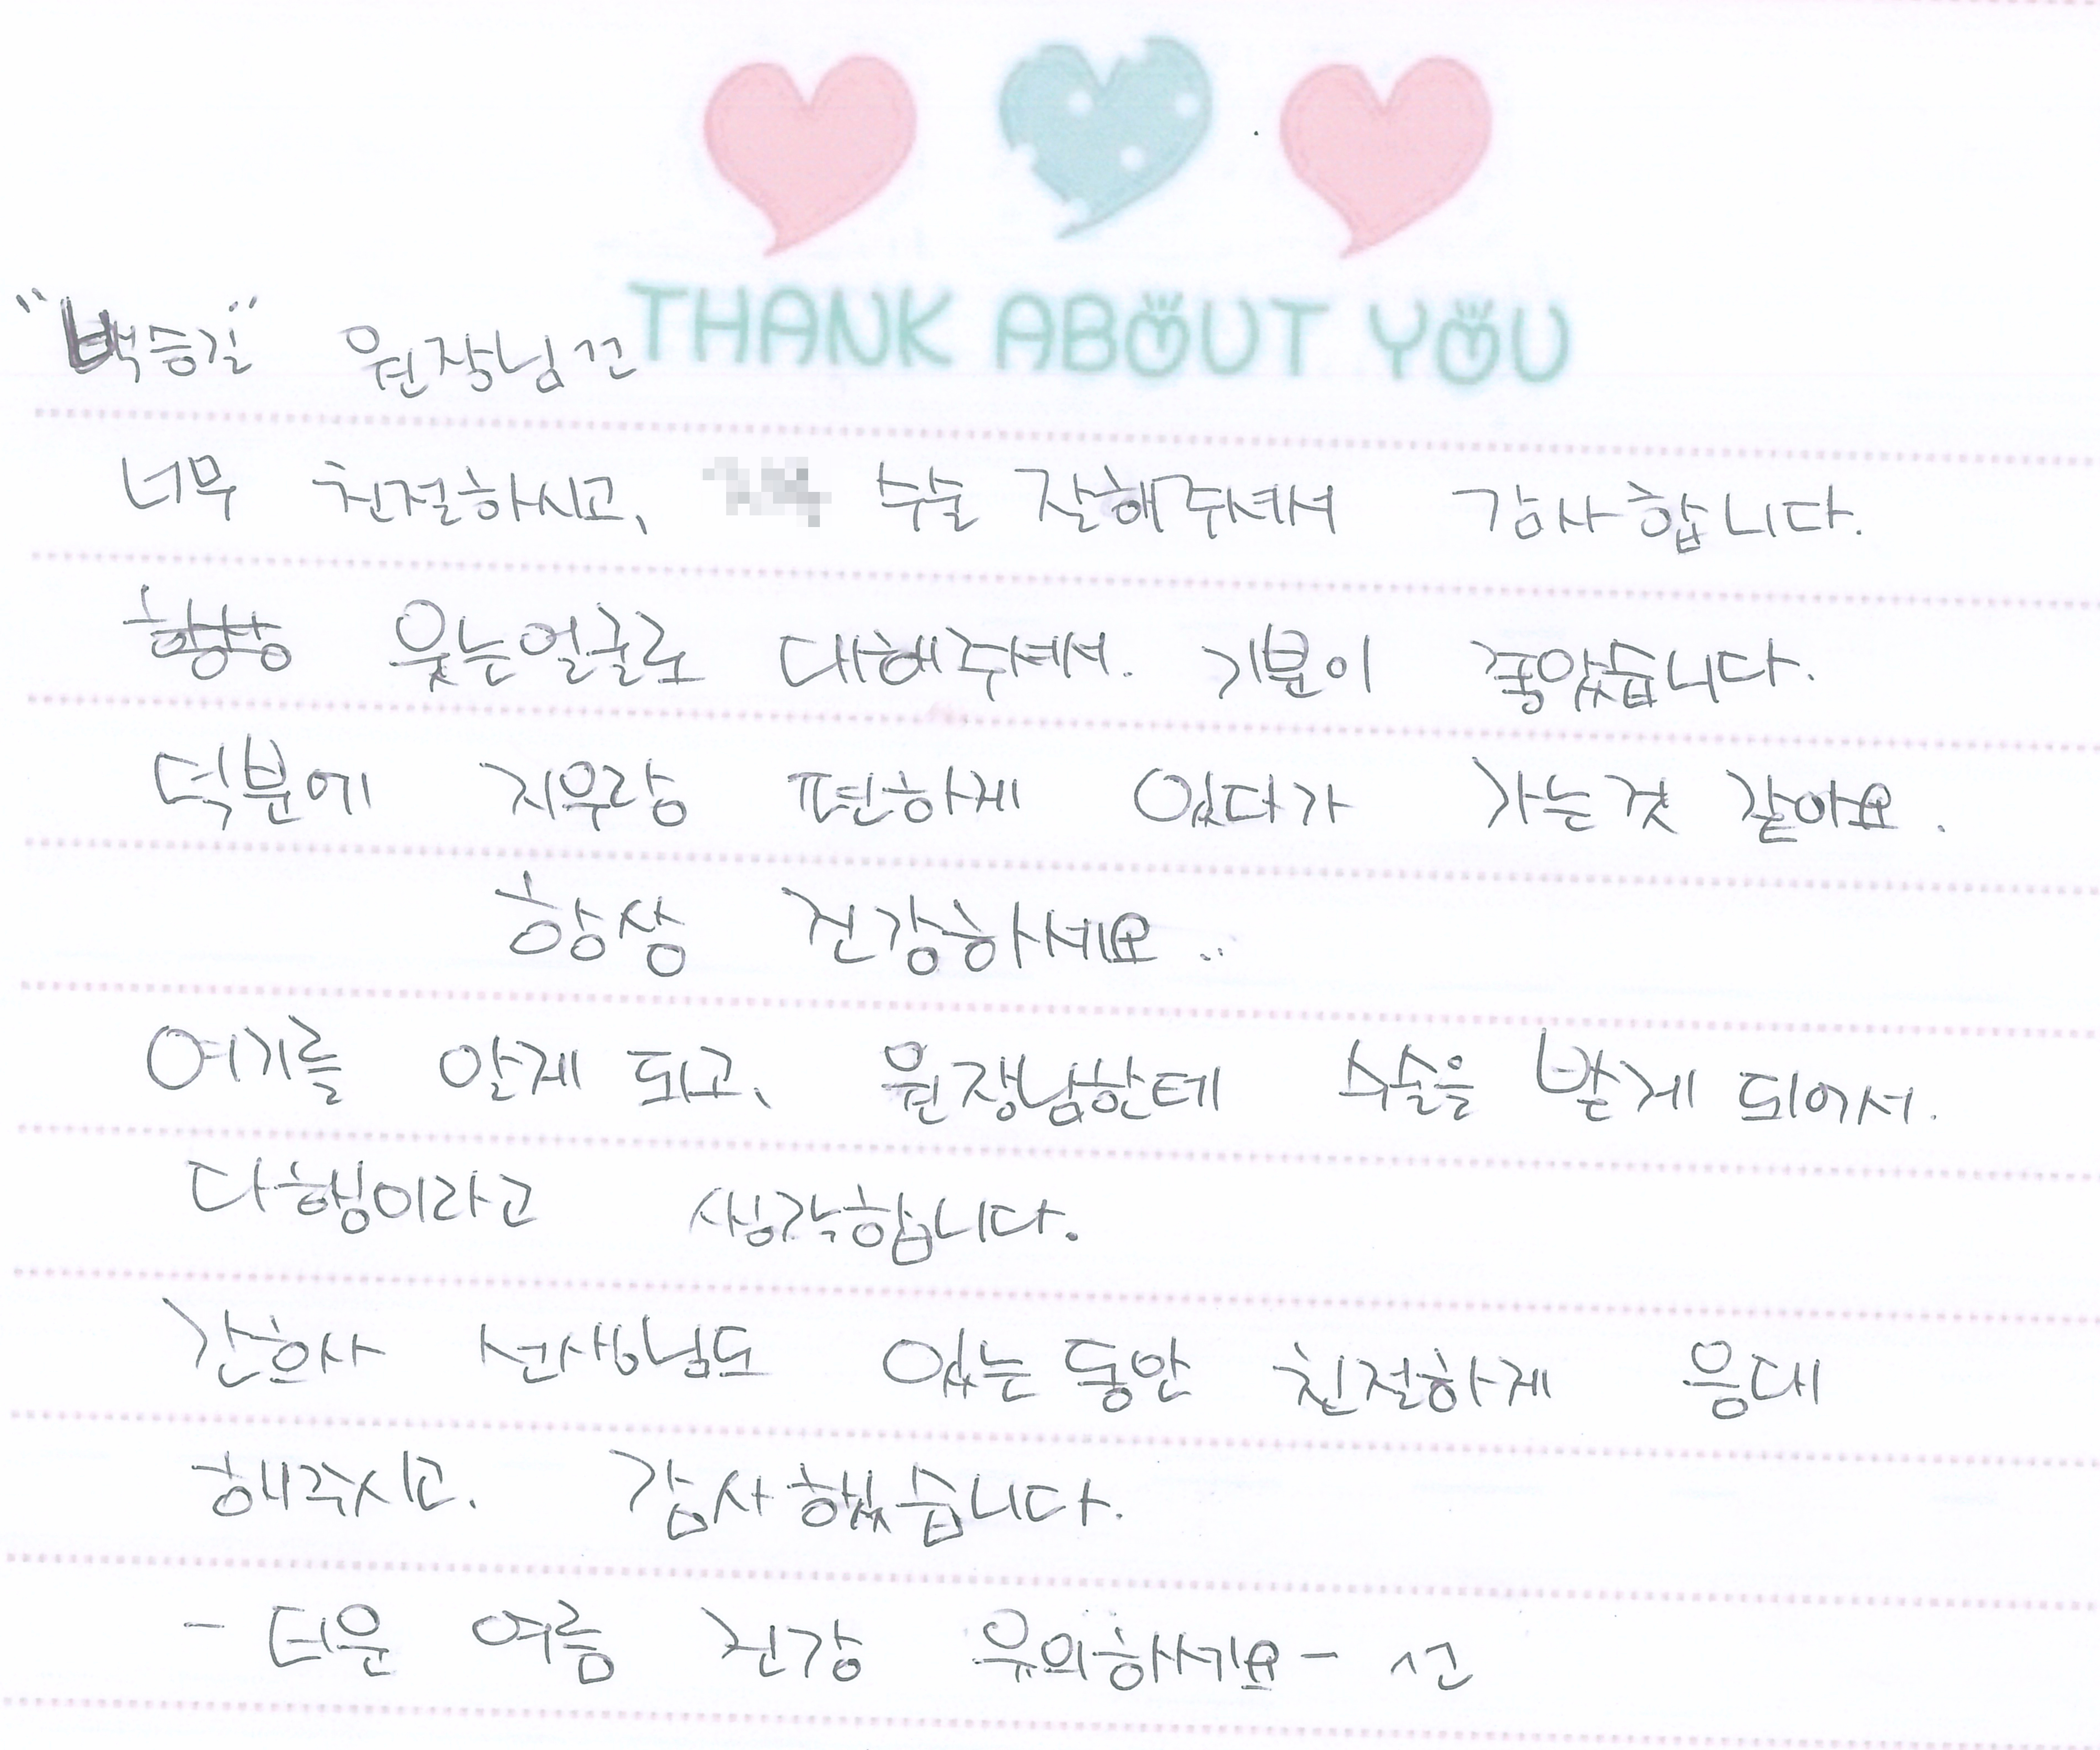 THANK ABOUT YOU
"백승길" 원장님께
너무 친절하시고, 수술 잘해주셔서 감사합니다.
항상 웃는얼굴로 대해주셔서. 기분이 좋았습니다.
덕분에 지우랑 편하게 있다가 가는것 같아요.
항상 건강하세요..
여기를 알게 되고, 원장님한테 수술을 받게 되어서.
다행이라고 생각합니다.
간호사 선생님도 있는동안 친절하게 응대
해주시고. 감사했습니다.
- 더운 여름 건강 유의하세요-